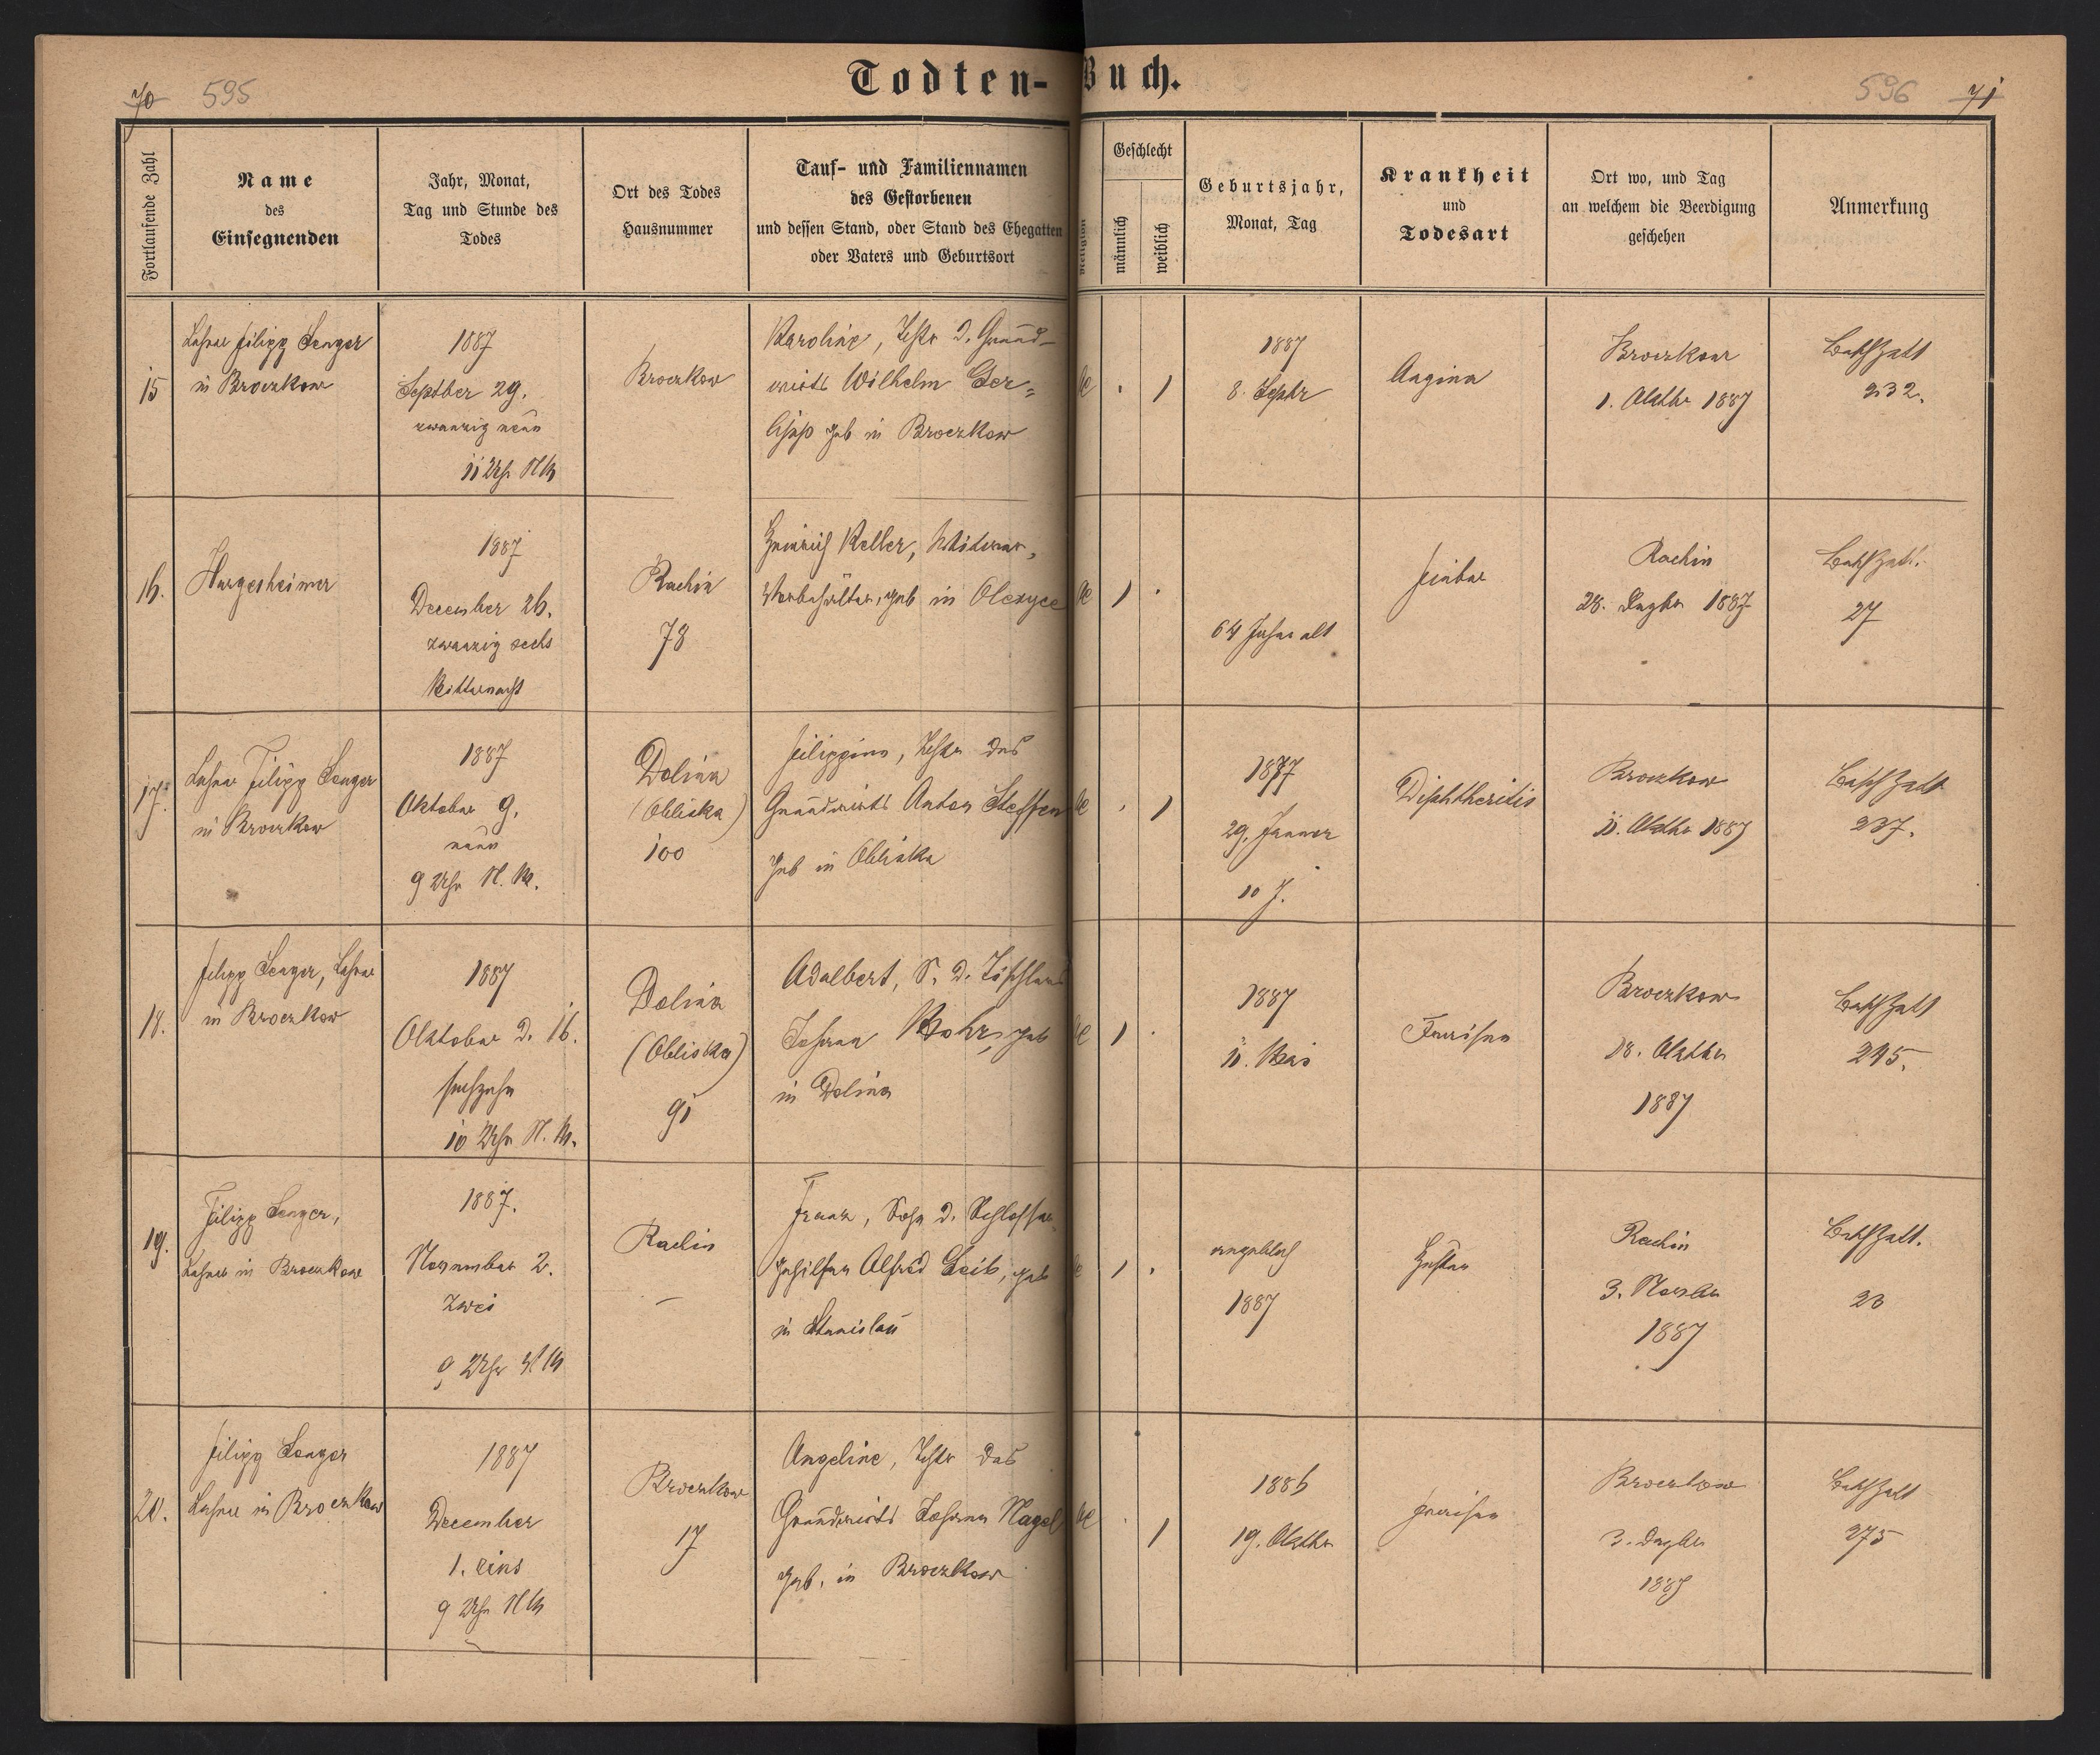 70 595
Todten-Buch.
596 71
Fortlaufende Zahl
Name
des
Einsegnenden
Jahr, Monat,
Tag und Stunde des
Todes
Ort des Todes
Hausnummer
Tauf- und Familiennamen
des Gestorbenen
und dessen Stand, oder Stand des Ehegatten
oder Vaters und Geburtsort
Religion
Geschlecht
männlich
weiblich
Geburtsjahr,
Monat, Tag
Krankheit
und
Todesart
Ort wo, und Tag
an welchem die Beerdigung
geschehen
Anmerkung
15
Lehrer Filipp Senger
in Broczkow
1887
Septber 29.
zwanzig neun
11 Uhr NM
Broczkow
Karoline, Tchtr d. Grund-
wirts Wilhelm Ger=
geb in Broczkow
1
1887
8. Septr
Angina
Broczkow
1. Oktbr 1887
232.
16.
Hargesheimer
1887
December 26.
zwanzig sechs
Mitternacht
Rachin
78
Heinrich Keller, Witwer,
geb in Oleszyce
1
64 Jahre alt
Fieber
Rachin
28. Dezbr 1887
27
17.
Lehrer Filipp Senger
in Broczkow
1887
Oktober 9.
neun
9 Uhr N. M.
Dolina
(Obliska)
100
Filippine, Tchtr des
Grundwirts Anton Steffen
geb in Obliska
1
1877
29. Jänner
10 J.
Diphtheritis
Broczkow
11. Oktbr 1887
237.
18.
Filipp Senger, Lehrer
in Broczkow
1887
Oktober d. 16.
sechzehn
10 Uhr N. M.
Dolina
(Obliska)
91
Adalbert, S. d. Tischlers
Johann Bohr, geb
in Dolina
1
1887
11. Mai
Fraisen
Broczkow
18. Oktbr
1887
245.
19.
Filipp Senger,
Lehrer in Broczkow
1887.
November 2.
zwei
9 Uhr NM
Rachin
Franz, Sohn d. Schlosser-
gehilfen Alfred Leib, geb
in Stanislau
1
angeblich
1887
Husten
Rachin
3. Novbr
1887
20.
Filipp Senger
Lehrer in Broczkow
1887
December
1. eins
9 Uhr NM
Broczkow
17
Angeline, Tchtr des
Grundwirts Johann Nagel
geb. in Broczkow
1
1886
19. Oktbr
Fraisen
Broczkow
3. Dezbr
1887
275